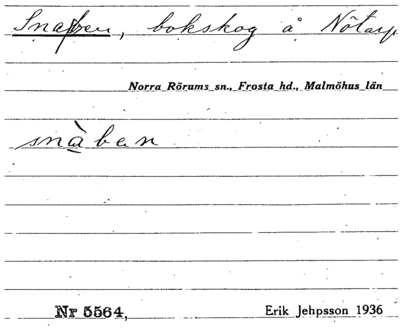 Snaben, bokskog å Nötarp
Norra Rörums sn., Frosta hd., Malmöhus län
snàben
Nr 5564,
Erik Jehpsson 1936